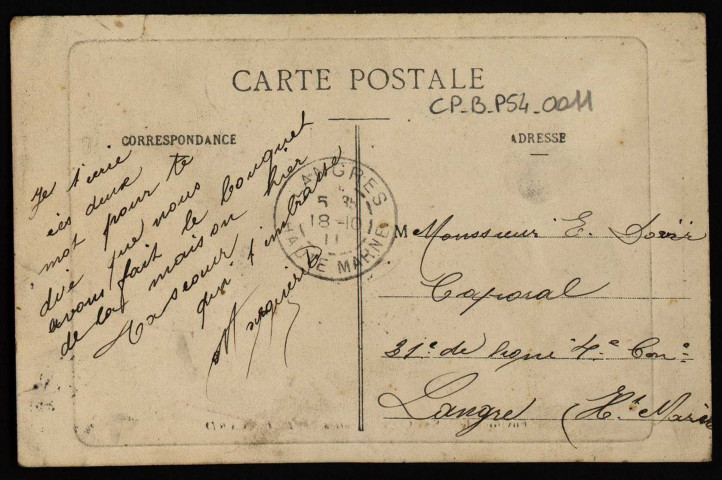 CARTE POSTALE
CP_B_PS4_0011
CORRESPONDANCE
ADRESSE
Je t'écrie
ces deux
mot pour te
dire que nous
avons fait le bouquet
de la maison hier
Ta soeur
qui t'embrasse
LANGRES
18-10
11
HAUTE MARNE
M Monssieur E.
Caporal
31e de ligne 4.e Con.e
Langre (Hte Marne